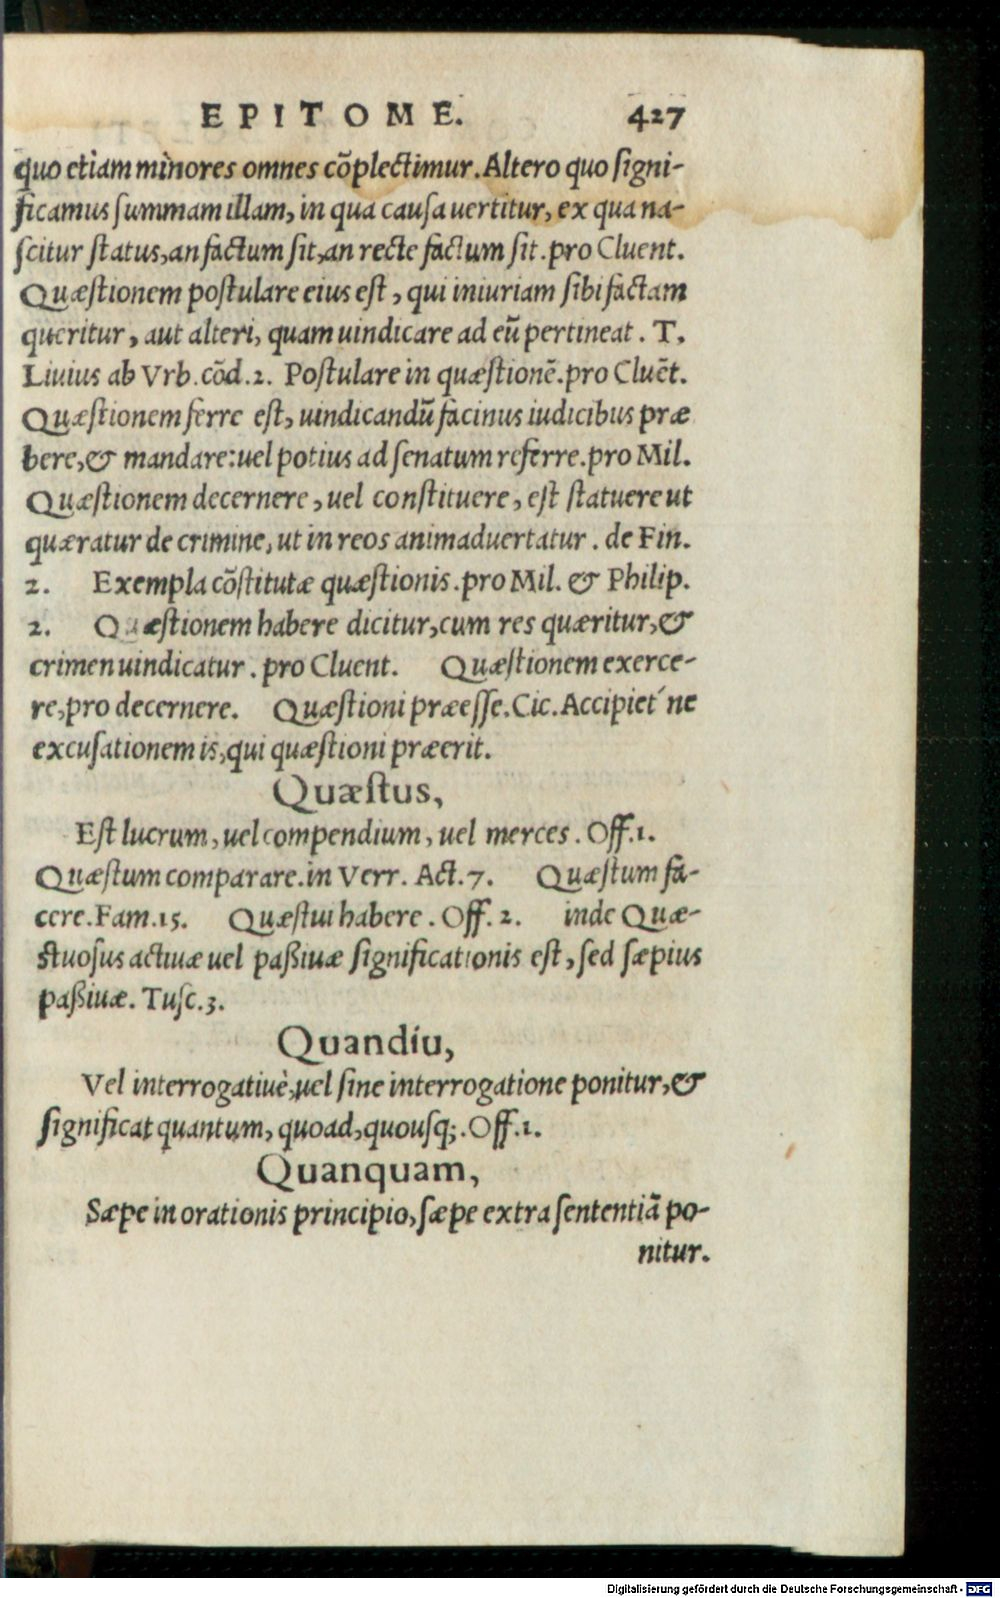 EPITOME. 427
quo etiam minores omnes cõplectimur. Altero quo signi-
ficamus summam illam, in qua causa uertitur, ex qua na-
scitur status, an factum sit, an recte factum sit. pro Cluent.
Quæstionem postulare eius est, qui iniuriam sibi factam
queritur, aut alteri, quam uindicare ad eũ pertineat. T.
Liuius ab Vrb. cõd. 2. Postulare in quæstionẽ. pro Cluẽt.
Quæstionem ferre est, uindicandũ facinus iudicibus præ
bere, & mandare: uel potius ad senatum referre. pro Mil.
Quæstionem decernere, uel constituere, est statuere ut
quæratur de crimine, ut in reos animaduertatur. de Fin.
2. Exempla cõstitutæ quæstionis. pro Mil. & Philip.
2. Quæstionem habere dicitur, cum res quæritur, &
crimen uindicatur. pro Cluent. Quæstionem exerce-
re, pro decernere. Quæstioni præesse. Cic. Accipiet´ne
excusationem is, qui quæstioni præerit.
Quæstus,
Est lucrum, uel compendium, uel merces. Off. 1.
Quæstum comparare. in Verr. Act. 7. Quæstum fa-
cere. Fam. 15. Quæstui habere. Off. 2. inde Quæ-
stuosus actiuæ uel paßiuæ significationis est, sed sæpius
paßiuæ. Tusc. 3.
Quandiu,
Vel interrogatiuè, uel sine interrogatione ponitur, &
significat quantum, quoad, quousq;. Off. 1.
Quanquam,
Sæpe in orationis principio, sæpe extra sententiã po-
nitur.
Digitalisierung gefördert durch die Deutsche Forschungsgemeinschaft - DFG